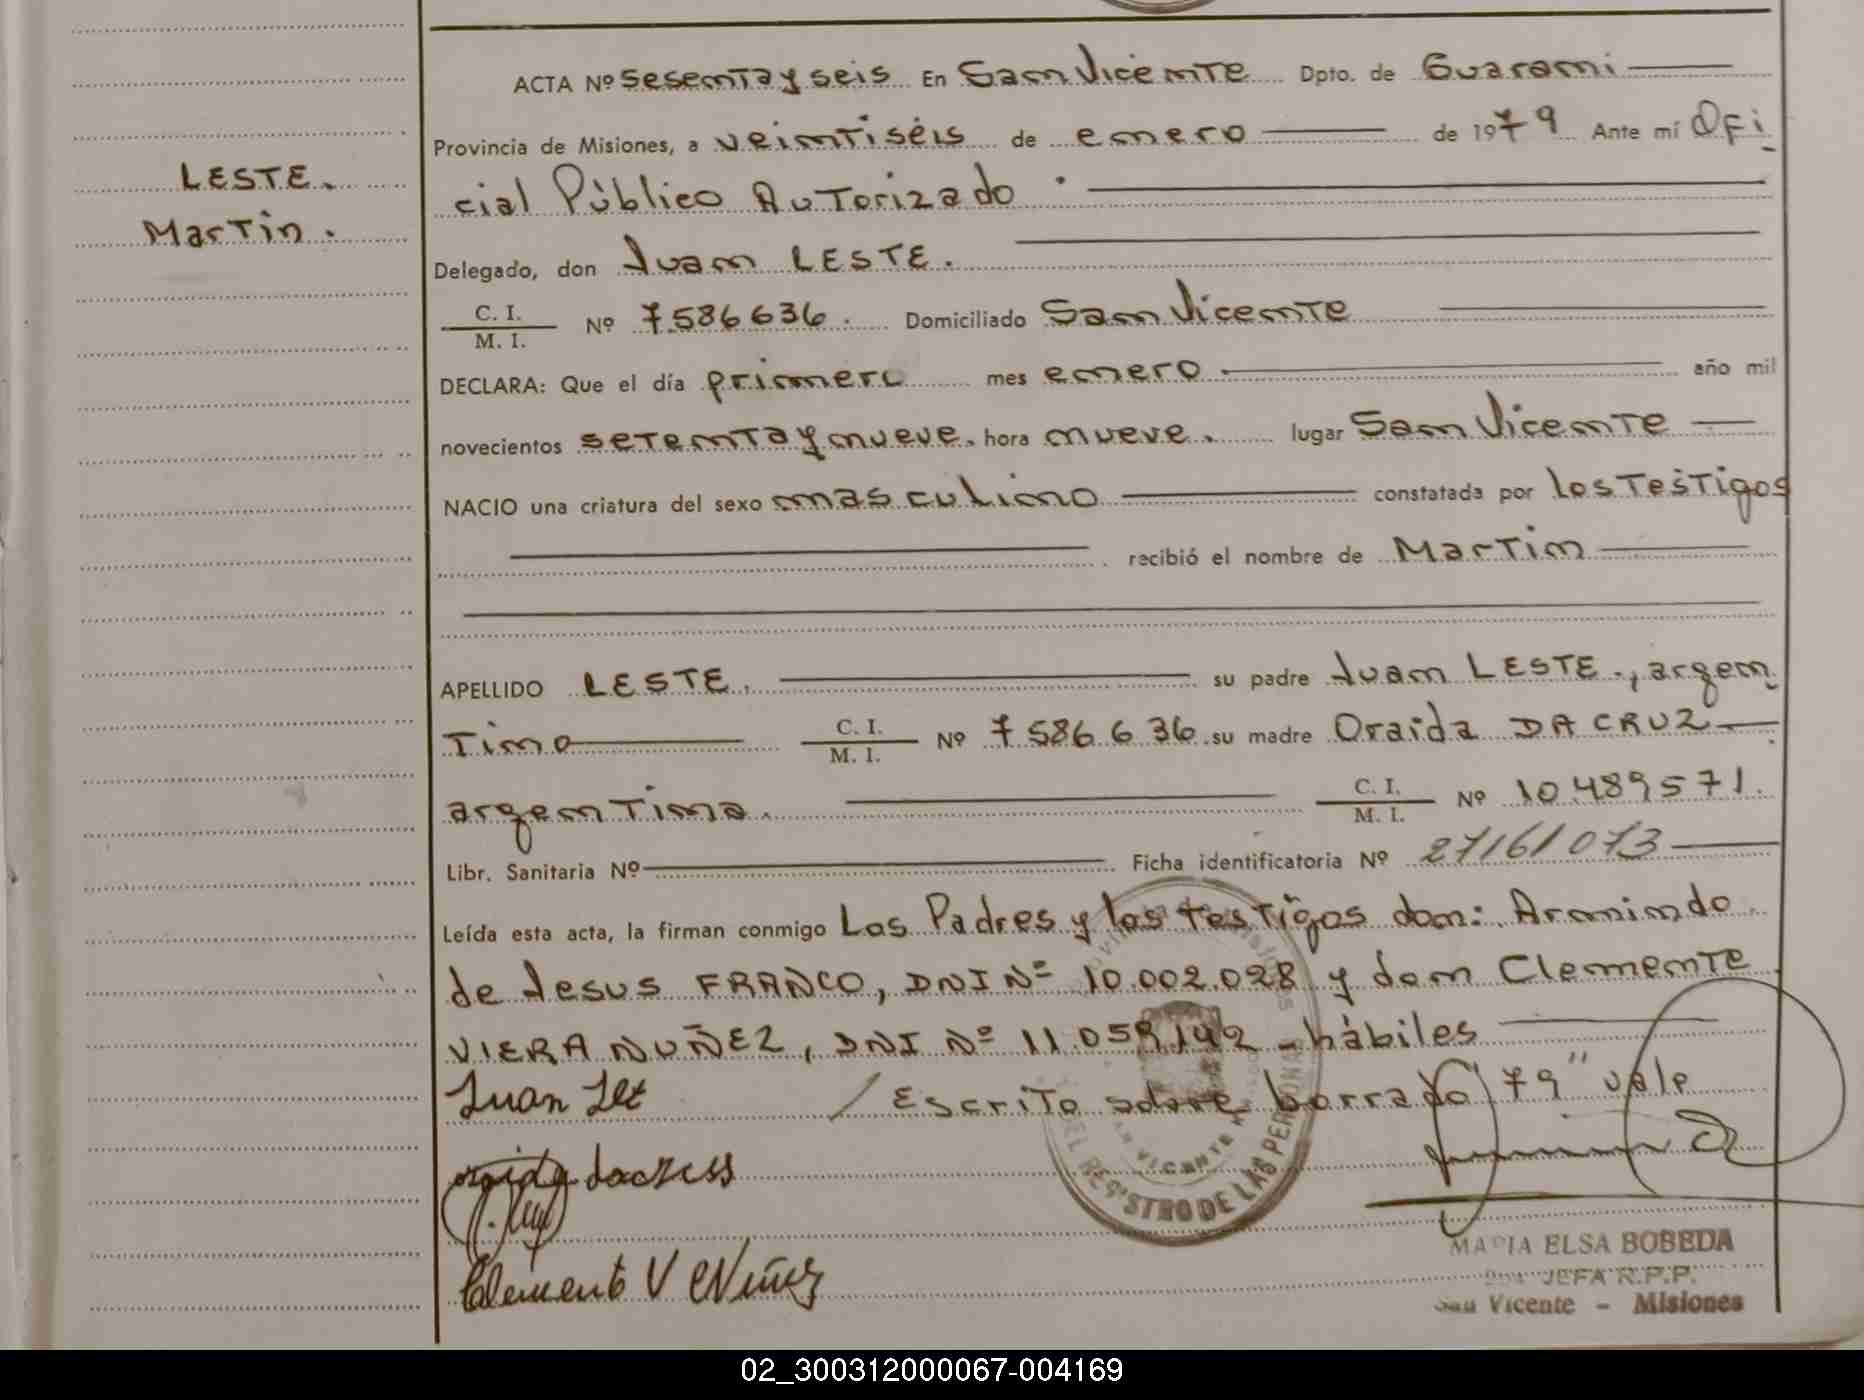 ACTA Nº sesenta y seis En San Vicente Dpto. de Guaraní
Provincia de Misiones, a veintiséis de enero de 1979 Ante mí Ofi
LESTE.
cial Público Autorizado.
Martin.
Delegado, don Juan LESTE.
C. I.
M. I. Nº 7586636. Domiciliado San Vicente
DECLARA: Que el día primero mes enero. año mil
novecientos setenta y nueve. hora nueve. lugar San Vicente
NACIO una criatura del sexo masculino constatada por los Testigos
recibió el nombre de Martin
APELLIDO LESTE. su padre Juan LESTE., argen
tino C. I.
M. I. Nº 7586636 su madre Oraida DA CRUZ
argentina. C. I.
M. I. Nº 10.489571.
Libr. Sanitaria Nº Ficha identificatoria Nº 27161073
Leída esta acta, la firman conmigo Los Padres y los testigos don: Armindo
de Jesus FRANCO, DNI Nº 10.002.028 y don Clemente
VIERA NUÑEZ, DNI Nº 11.059.142 - hábiles
Juan Let / Escrito sobre borrado "79" vale
Clemente V Nuñez
SAN VICENTE
DEL REGISTRO DE LAS PERSONAS
MARIA ELSA BOBEDA
JEFA R.P.P.
San Vicente - Misiones
02_300312000067-004169